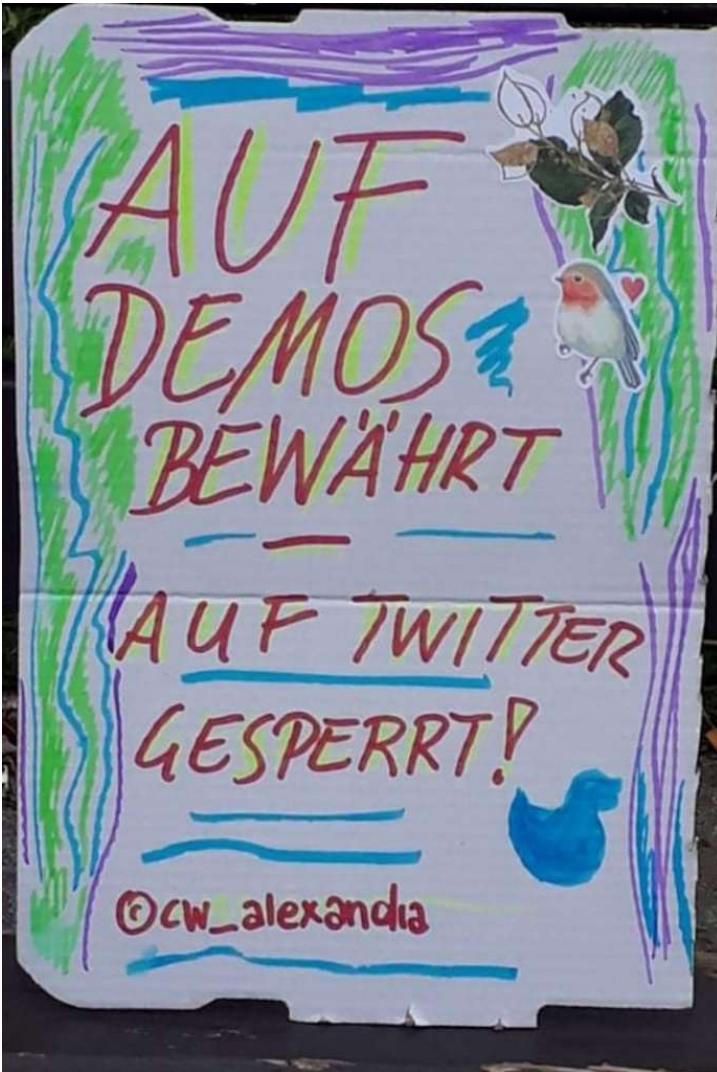 AUF
DEMOS
BEWÄHRT
AUF TWITTER
GESPERRT!
©cw_alexandia